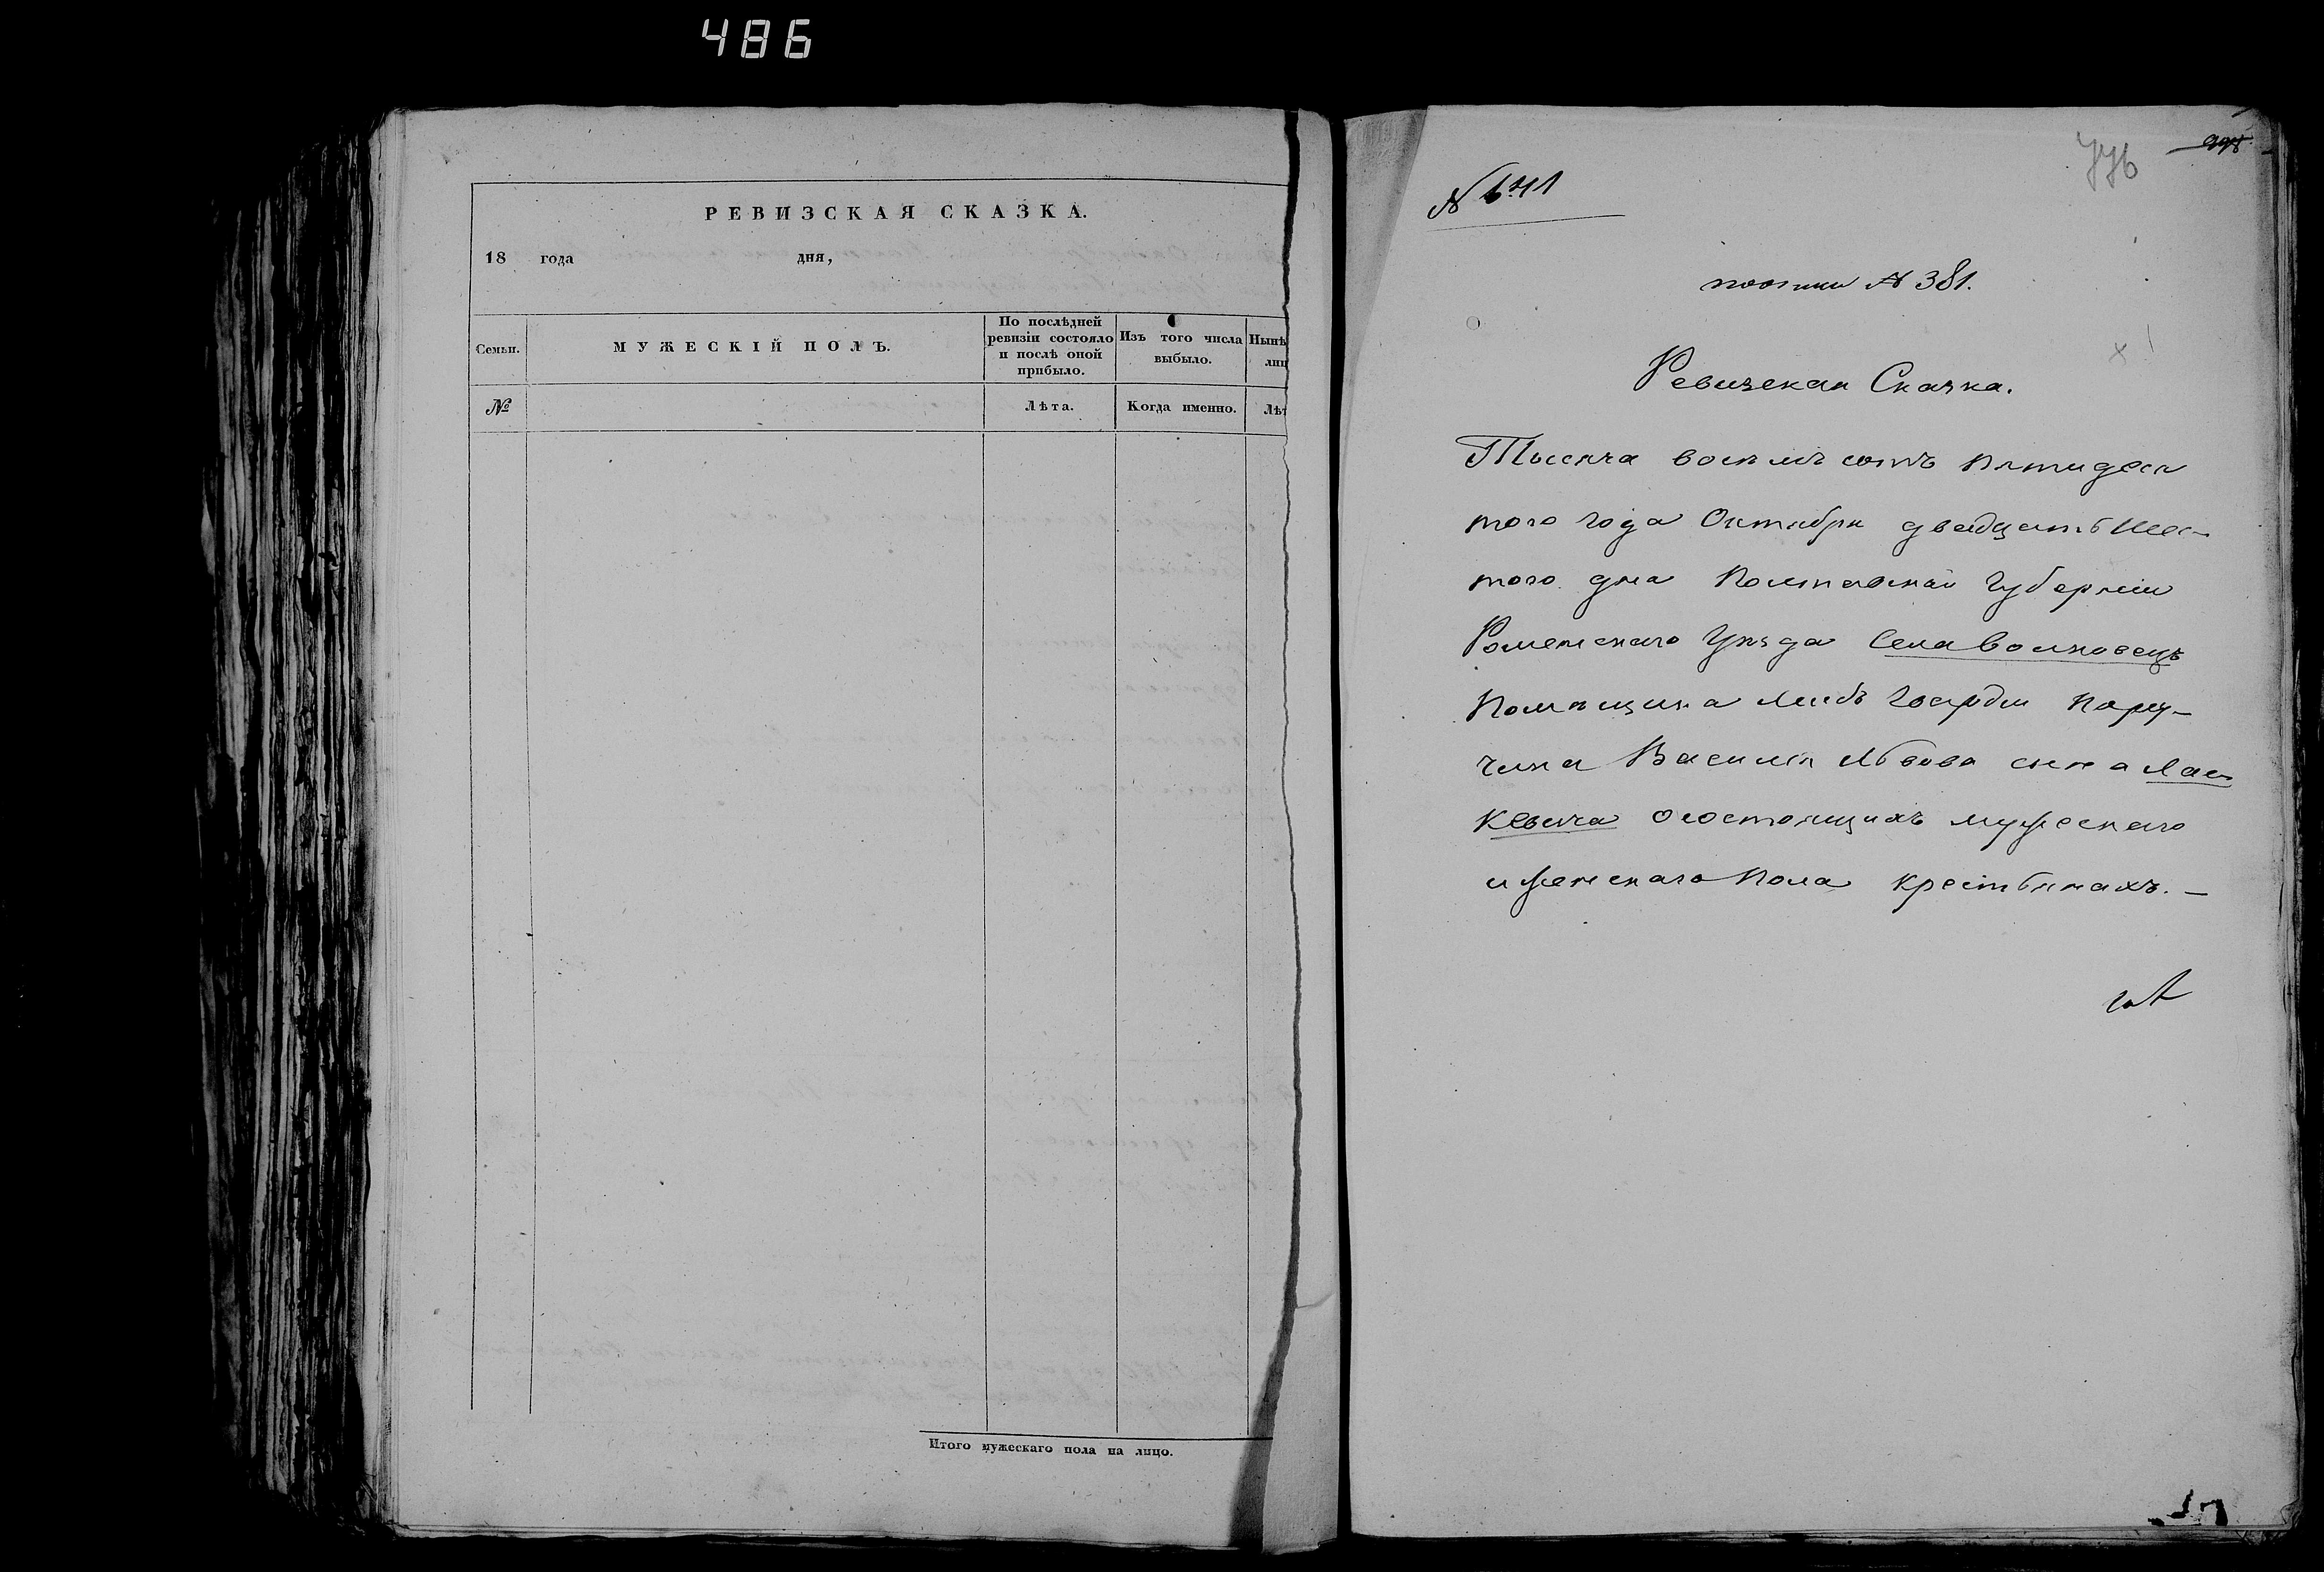 486
РЕВИЗСКАЯ СКАЗКА.
18 года дня,
Семьи.
МУЖЕСКІЙ ПОЛЪ.
По послѣдней
ревизіи состояло
и послѣ оной
прибыло.
Изъ того числа
выбыло.
Нынѣ
лиц
№
Лѣта.
Когда именно.
Лѣт
Итого мужескаго пола на лицо.
776
№ 641
№ 381.
Ревизская Сказка.
Тысяча восемь сотъ пятидеся
того года Октября двадцать шес-
того дня Полтавской Губерніи
Роменскаго Уѣзда Села Волковецъ
Помѣщика Лейбъ Гвардіи Пору-
чика Василія Львова сына Лас-
кевича осостоящихъ мужескаго
и женскаго пола крестьянахъ.